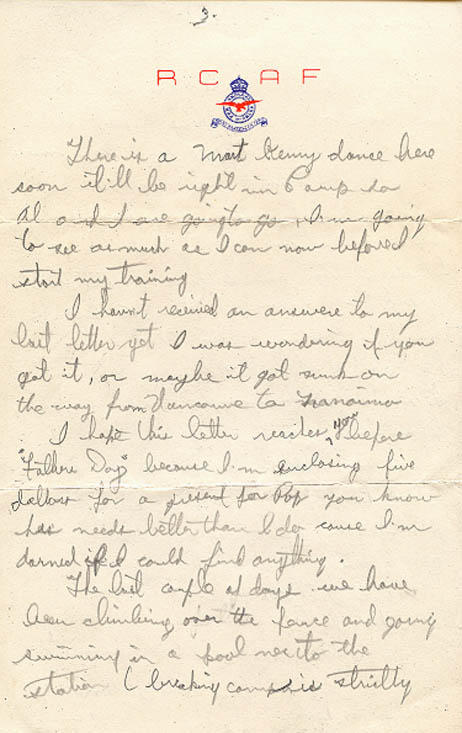 3.
R C A F
There is a Mart Kenny dance here
soon it'll be right in Camp so
Al and I are going to go, I'm going
to see as much as I can now before I
start my training
I havn't received an answere to my
last letter yet I was wondering if you
got it, or maybe it got sunk on
the way from Vancouver to Nanaimo
I hope this letter reaches you before
"Fathers Day" because I'm enclosing five
dollars for a present for Pop you know
his needs better than I do cause I'm
darned if I could find anything.
The last couple of days we have
been climbing over the fence and going
swimming in a pool next to the
station (breaking camp is strictly